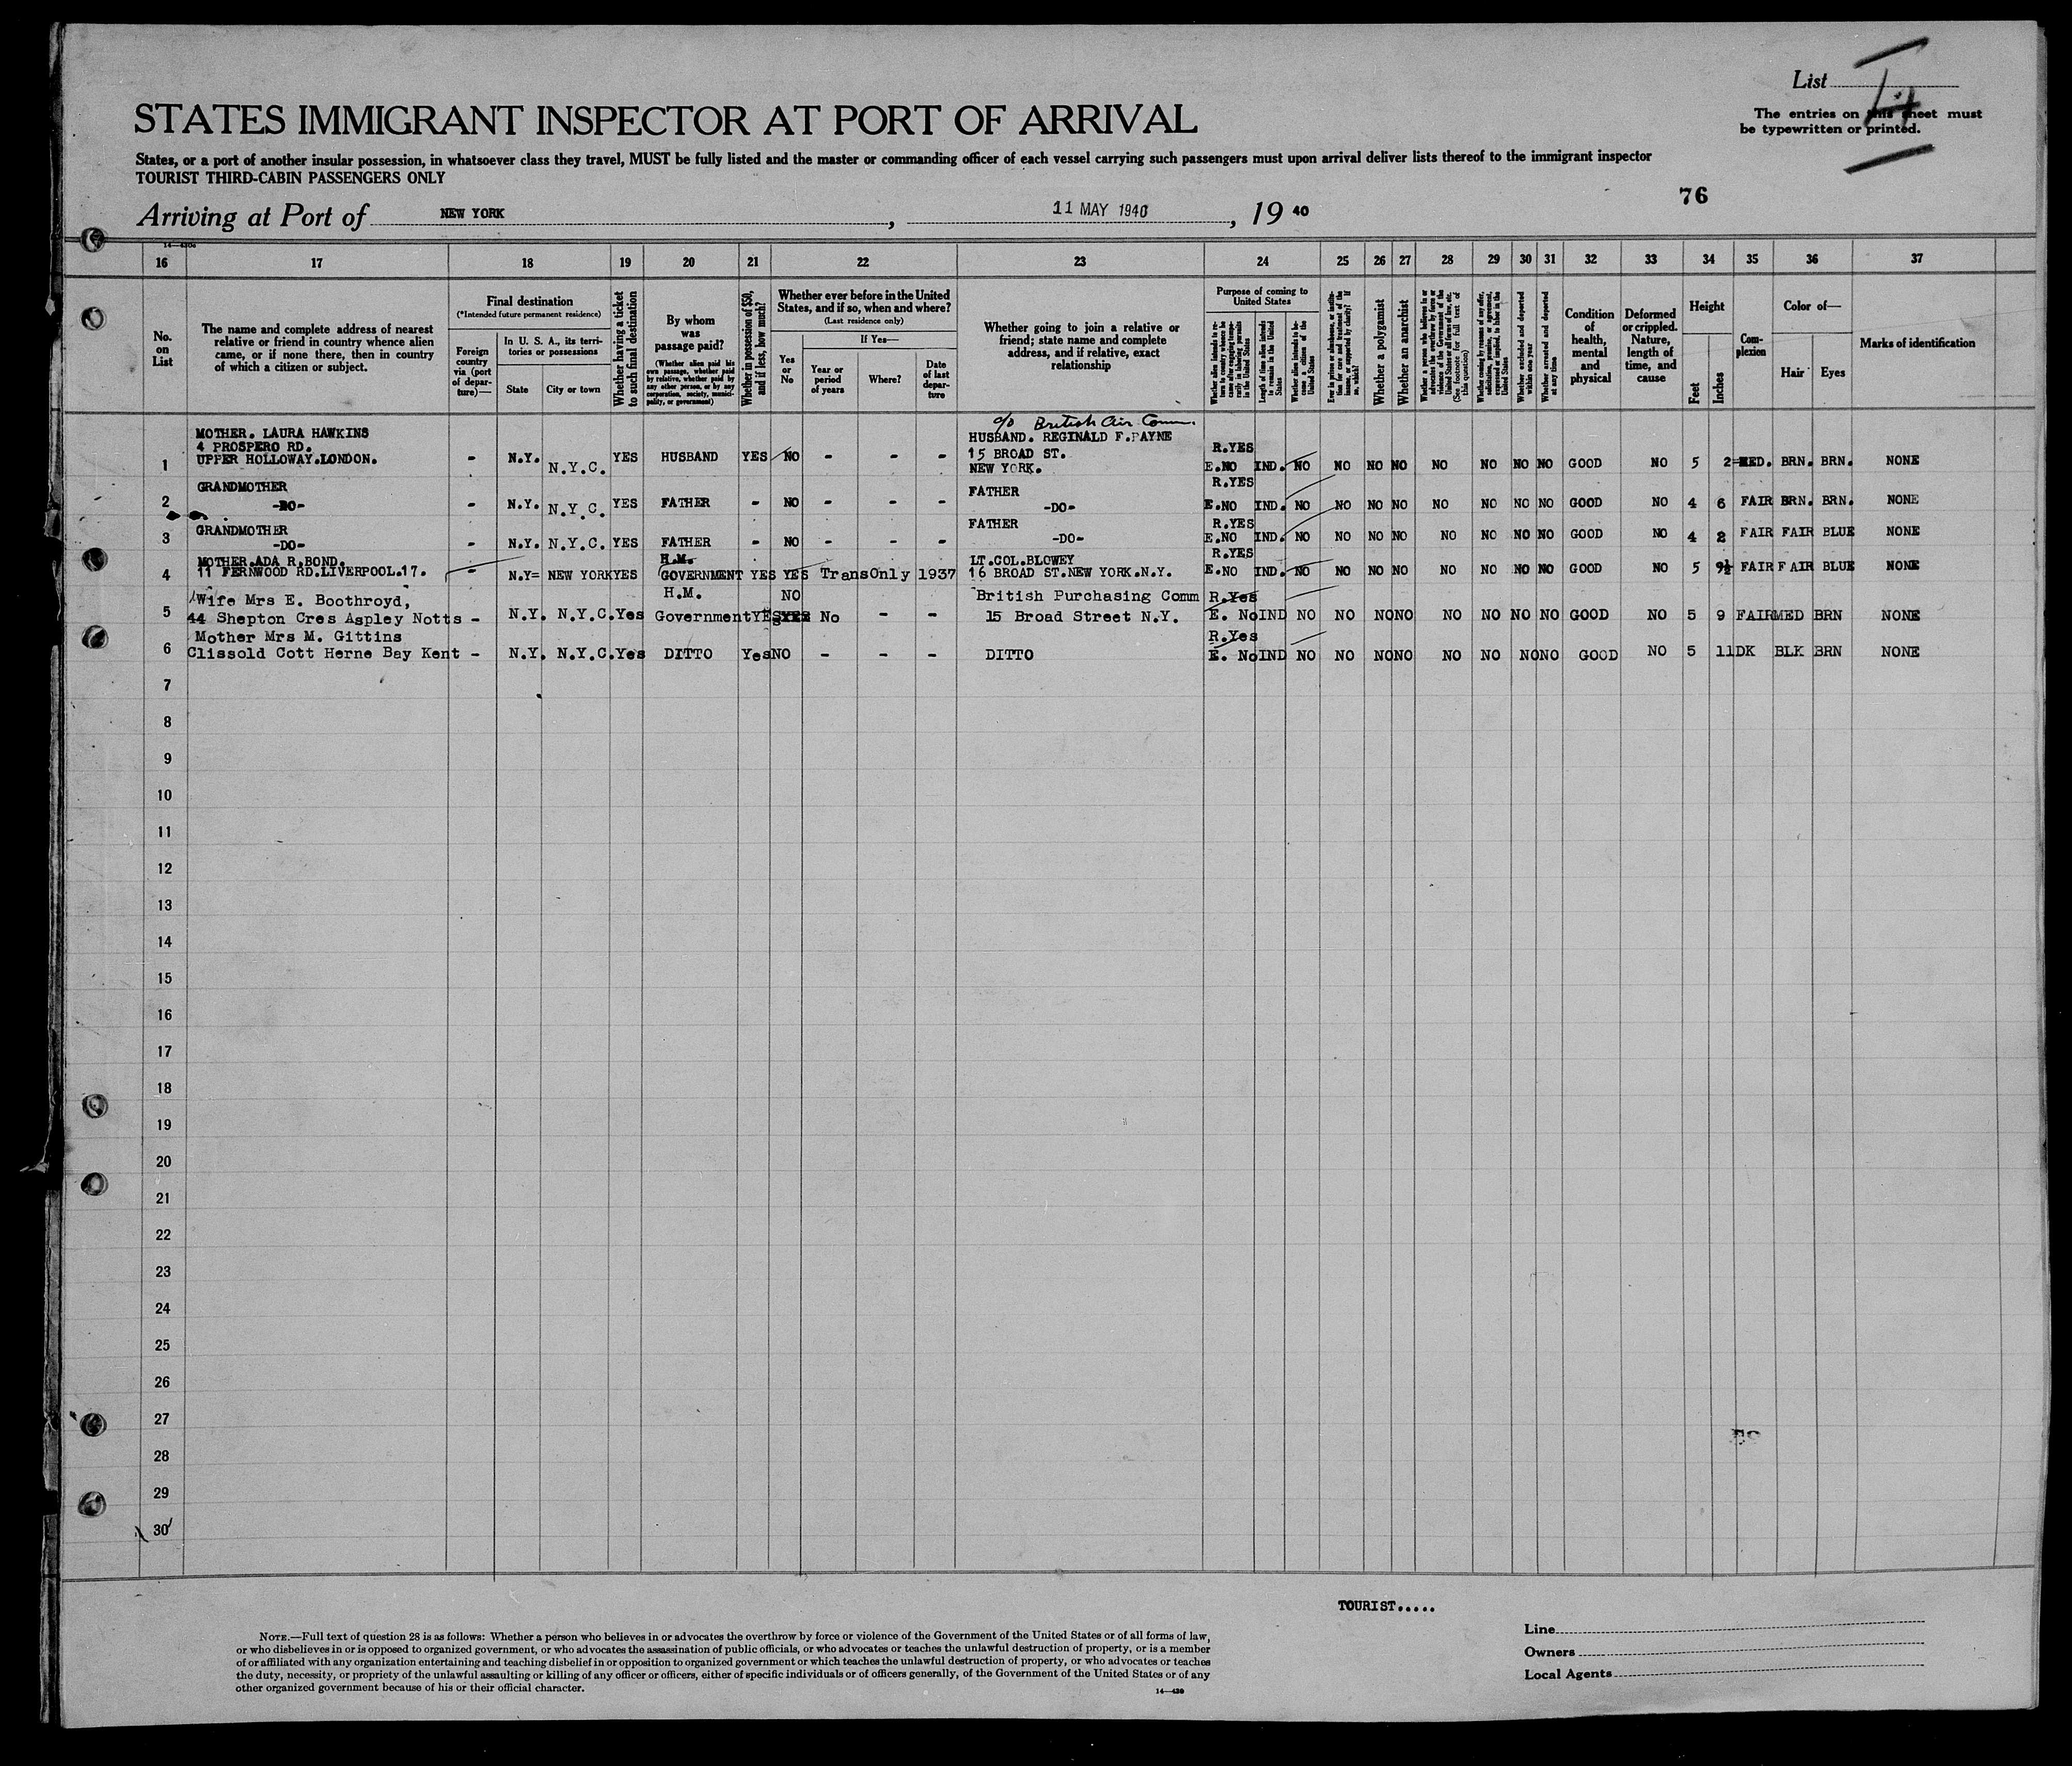 List
The entries on this sheet must
be typewritten or printed.
STATES IMMIGRANT INSPECTOR AT PORT OF ARRIVAL
States, or a port of another insular possession, in whatsoever class they travel, MUST be fully listed and the master or commanding officer of each vessel carrying such passengers must upon arrival deliver lists thereof to the immigrant inspector
TOURIST THIRD-CABIN PASSENGERS ONLY
76
Arriving at Port of NEW YORK, 11 MAY 1940, 19 40
16 17 18 19 20 21 22 23 24 25 26 27 28 29 30 31 32 33 34 35 36 37
No. on List
The name and complete address of nearest
relative or friend in country whence alien
came, or if none there, then in country
of which a citizen or subject.
Final destination
(*Intended future permanent residence)
Foreign country via (port of departure)—
In U. S. A., its territories or possessions
State
City or town
Whether having a ticket to such final destination
By whom was passage paid?
(Whether alien paid his own passage, whether paid by relative, whether paid by any other person, or by any corporation, society, municipality, or government)
Whether in possession of $50, and if less, how much?
Whether ever before in the United States, and if so, when and where?
(Last residence only)
Yes or No
If Yes—
Year or period of years
Where?
Date of last departure
Whether going to join a relative or
friend; state name and complete
address, and if relative, exact
relationship
Purpose of coming to United States
Whether alien intends to return to country whence he came after engaging temporarily in laboring pursuits in the United States
Length of time alien intends to remain in the United States
Whether alien intends to become a citizen of the United States
Whether a polygamist
Whether an anarchist
Whether excluded and deported within one year
Whether arrested and deported at any time
Condition of health, mental and physical
Deformed or crippled. Nature, length of time, and cause
Height
Feet
Inches
Complexion
Color of—
Hair
Eyes
Marks of identification
c/o British Air Comm.
MOTHER. LAURA HAWKINS HUSBAND. REGINALD F.PAYNE
4 PROSPERO RD. 15 BROAD ST. R.YES
1 UPPER HOLLOWAY.LONDON. - N.Y. N.Y.C. YES HUSBAND YES NO - - - NEW YORK. E.NO IND. NO NO NO NO NO NO NO NO GOOD NO 5 2 MED. BRN. BRN. NONE
GRANDMOTHER FATHER R.YES
2 -DO- - N.Y. N.Y.C. YES FATHER - NO - - - -DO- E.NO IND. NO NO NO NO NO NO NO NO GOOD NO 4 6 FAIR BRN. BRN. NONE
GRANDMOTHER FATHER R.YES
3 -DO- - N.Y. N.Y.C. YES FATHER - NO - - - -DO- E.NO IND. NO NO NO NO NO NO NO NO GOOD NO 4 2 FAIR FAIR BLUE NONE
MOTHER.ADA R.BOND. H.M. LT.COL.BLOWEY R.YES
4 11 FERNWOOD RD.LIVERPOOL.17. - N.Y= NEW YORK YES GOVERNMENT YES YES Trans Only 1937 16 BROAD ST.NEW YORK.N.Y. E.NO IND. NO NO NO NO NO NO NO NO GOOD NO 5 9½ FAIR FAIR BLUE NONE
Wife Mrs E. Boothroyd, H.M. NO British Purchasing Comm R.Yes
5 44 Shepton Cres Aspley Notts - N.Y. N.Y.C. Yes Government YES YES No - - 15 Broad Street N.Y. E. No IND NO NO NO NO NO NO NO NO GOOD NO 5 9 FAIR MED BRN NONE
Mother Mrs M. Gittins R.Yes
6 Clissold Cott Herne Bay Kent - N.Y. N.Y.C. Yes DITTO Yes NO - - - DITTO E. No IND NO NO NO NO NO NO NO NO GOOD NO 5 11 DK BLK BRN NONE
7
8
9
10
11
12
13
14
15
16
17
18
19
20
21
22
23
24
25
26
27
28
29
30
TOURIST.....
NOTE.—Full text of question 28 is as follows: Whether a person who believes in or advocates the overthrow by force or violence of the Government of the United States or of all forms of law,
or who disbelieves in or is opposed to organized government, or who advocates the assassination of public officials, or who advocates or teaches the unlawful destruction of property, or is a member
of or affiliated with any organization entertaining and teaching disbelief in or opposition to organized government or which teaches the unlawful destruction of property, or who advocates or teaches
the duty, necessity, or propriety of the unlawful assaulting or killing of any officer or officers, either of specific individuals or of officers generally, of the Government of the United States or of any
other organized government because of his or their official character.
14—430
Line
Owners
Local Agents